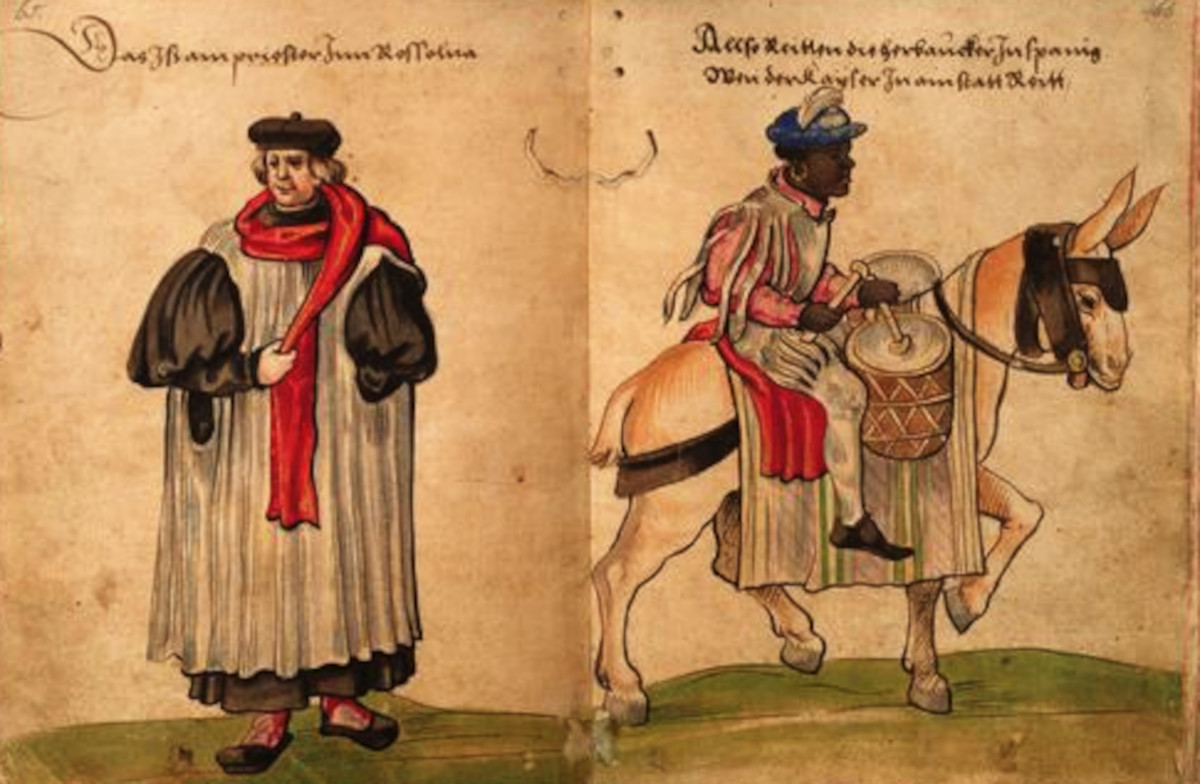 65
Das Ist ain priester Inn Rossolna
166
Allso Reitten die herbaucker In spanig
Wen der kayser In ain statt Reitt